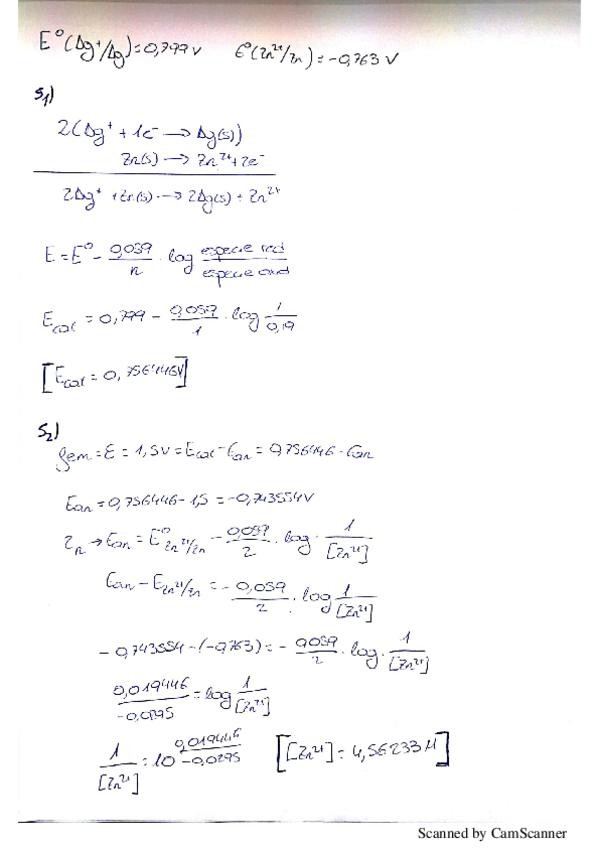 E⁰(Ag⁺/Ag)=0,799V E⁰(Zn²⁺/Zn)=-0,763V
S1)
2(Ag⁺ + 1e⁻ → Ag(s))
Zn(s) → Zn²⁺+2e⁻
2Ag⁺ + Zn(s) → 2Ag(s) + Zn²⁺
E = E⁰ - 0,059/n · log especie red/especie oxid
Ecat = 0,799 - 0,059/1 · log 1/0,19
[Ecat = 0,756446V]
S2)
fem = E = 1,5V = Ecat - Ean = 0,756446 - Ean
Ean = 0,756446 - 1,5 = -0,743554V
Zn → Ean = E⁰Zn²⁺/Zn - 0,059/2 · log · 1/[Zn²⁺]
Ean - EZn²⁺/Zn = - 0,059/2 · log 1/[Zn²⁺]
-0,743554 - (-0,763) = - 0,059/2 · log · 1/[Zn²⁺]
0,019446/-0,0295 = log 1/[Zn²⁺]
1/[Zn²⁺] = 10^0,019446/-0,0295 [[Zn²⁺] = 4,56233M]
Scanned by CamScanner